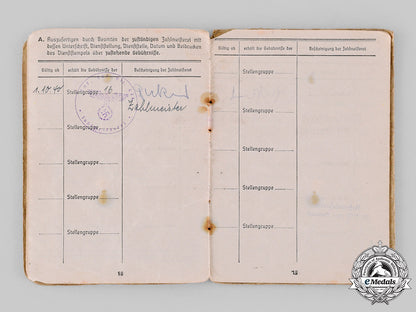 A. Auszufertigen durch Beamten der zuständigen Zahlmeisterei mit
dessen Unterschrift, Dienststellung, Dienststelle, Datum und Beidrucken
des Dienststempels über zustehende Gebührnisse.
Gültig ab
erhält die Gebührnisse der
Bescheinigung der Zahlmeisterei
Stellengruppe 16
Zahlmeister
Stellengruppe
Stellengruppe
Stellengruppe
Stellengruppe
18
Gültig ab
erhält die Gebührnisse der
Bescheinigung der Zahlmeisterei
Stellengruppe
Stellengruppe
Stellengruppe
Stellengruppe
Stellengruppe
eMedals